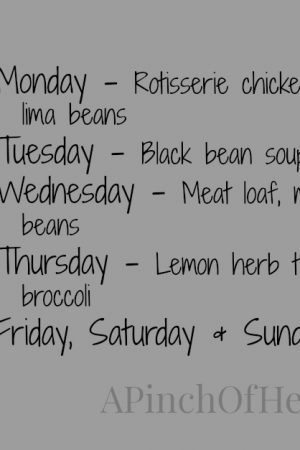 Monday - Rotisserie
lima beans
Tuesday - Black bean
Wednesday - Meat loaf,
beans
Thursday - Lemon herb
broccoli
Friday, Saturday +